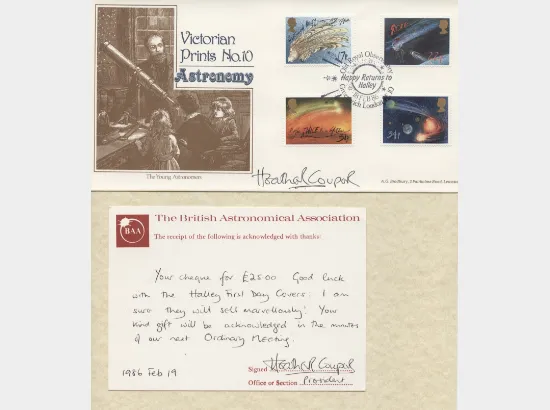 Victorian
Prints No.10
Astronomy
The Young Astronomers
17p
22p
31p
34p
Old Royal Observatory
Happy Returns to
Halley
18 FEB 86
Greenwich London
Heather Couper
BAA
The British Astronomical Association
The receipt of the following is acknowledged with thanks:
Your cheque for £25.00 Good luck
with the Halley First Day Covers: I am
sure they will sell marvellously! Your
kind gift will be acknowledged in the minutes
of our next Ordinary Meeting.
1986 Feb 19
Signed Heather Couper
Office or Section President